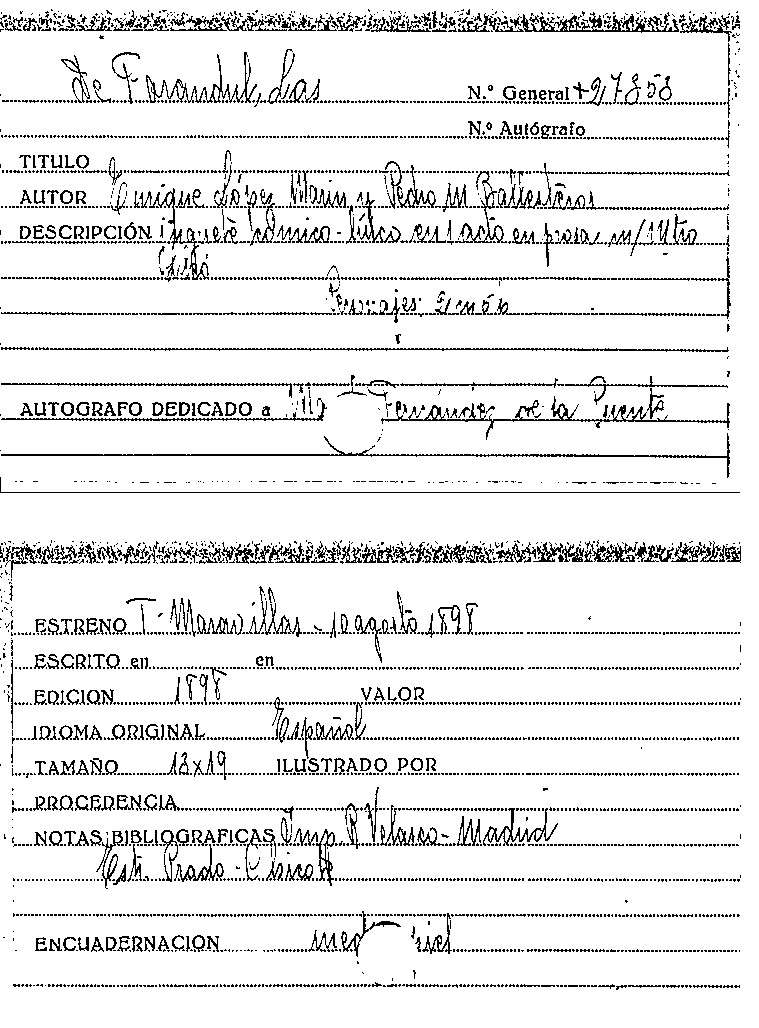 de Farandul, Las
N.º General +27858
N.º Autógrafo
TITULO
AUTOR Enrique López Marin y Pedro M Ballesteros
DESCRIPCIÓN juguete cómico-lírico en 1 acto en prosa, m/ Mtro
Personajes: 2 m 5 h
AUTOGRAFO DEDICADO a Fernández de la Puente
ESTRENO T. Maravillas - 10 agosto 1898
ESCRITO en en
EDICION 1898 VALOR
IDIOMA ORIGINAL Español
TAMAÑO 13x19 ILUSTRADO POR
PROCEDENCIA
NOTAS BIBLIOGRAFICAS Imp. R Velasco - Madrid
Estr. Prado - Chicote
ENCUADERNACION piel